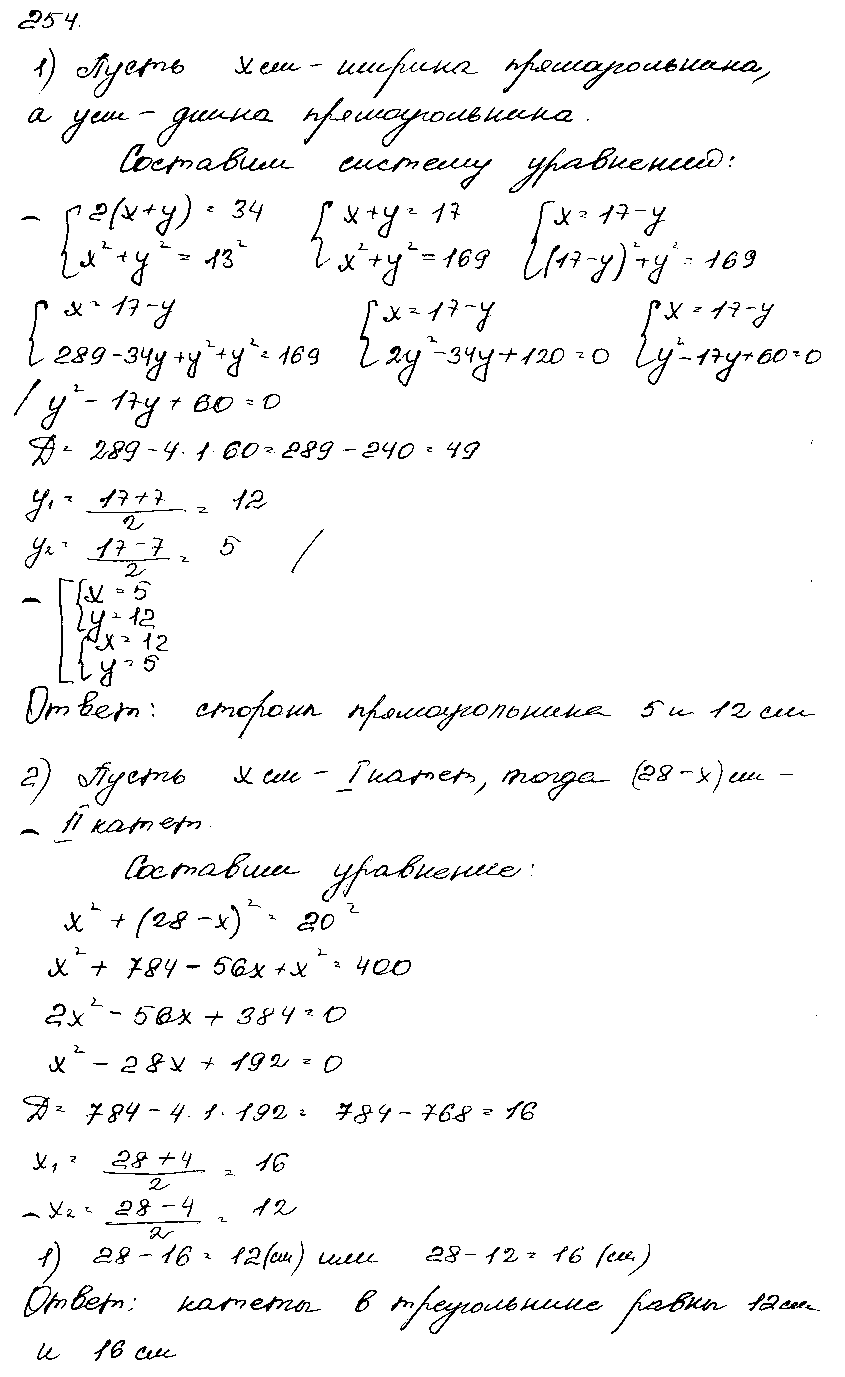 254.
1) Пусть x см – ширина прямоугольника,
а y см – длина прямоугольника.
Составим систему уравнений:
{2(x+y) = 34 {x+y = 17 {x = 17-y
{x²+y² = 13² {x²+y² = 169 {(17-y)²+y² = 169
{x = 17-y {x = 17-y {x = 17-y
{289-34y+y²+y² = 169 {2y²-34y+120 = 0 {y²-17y+60 = 0
/ y² - 17y + 60 = 0
D = 289 - 4·1·60 = 289 - 240 = 49
y₁ = (17+7)/2 = 12
y₂ = (17-7)/2 = 5 /
[{x = 5
{y = 12
{x = 12
{y = 5
Ответ: стороны прямоугольника 5 и 12 см
2) Пусть x см – I катет, тогда (28-x) см –
– II катет.
Составим уравнение:
x² + (28-x)² = 20²
x² + 784 - 56x + x² = 400
2x² - 56x + 384 = 0
x² - 28x + 192 = 0
D = 784 - 4·1·192 = 784 - 768 = 16
x₁ = (28+4)/2 = 16
x₂ = (28-4)/2 = 12
1) 28-16 = 12 (см) или 28-12 = 16 (см)
Ответ: катеты в треугольнике равны 12 см
и 16 см